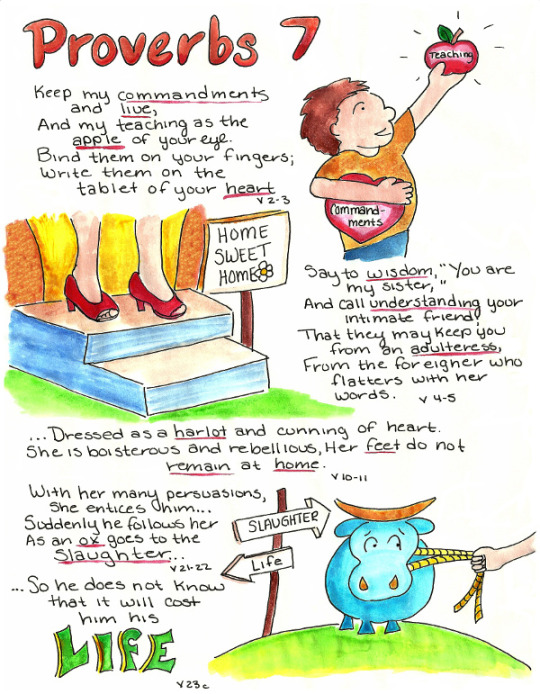 Proverbs 7
Teaching
Keep my commandments
and live,
And my teaching as the
apple of your eye.
Bind them on your fingers;
Write them on the
tablet of your heart
v 2-3
Command-
ments
HOME
SWEET
HOME
Say to wisdom, "You are
my sister,"
And call understanding your
intimate friend;
That they may keep you
from an adulteress,
From the foreigner who
flatters with her
words. v 4-5
...Dressed as a harlot and cunning of heart.
She is boisterous and rebellious, Her feet do not
remain at home.
v 10-11
With her many persuasions,
she entices him...
Suddenly he follows her
As an ox goes to the
Slaughter...
v 21-22
SLAUGHTER
Life
...So he does not know
that it will cost
him his
LIFE
v 23c